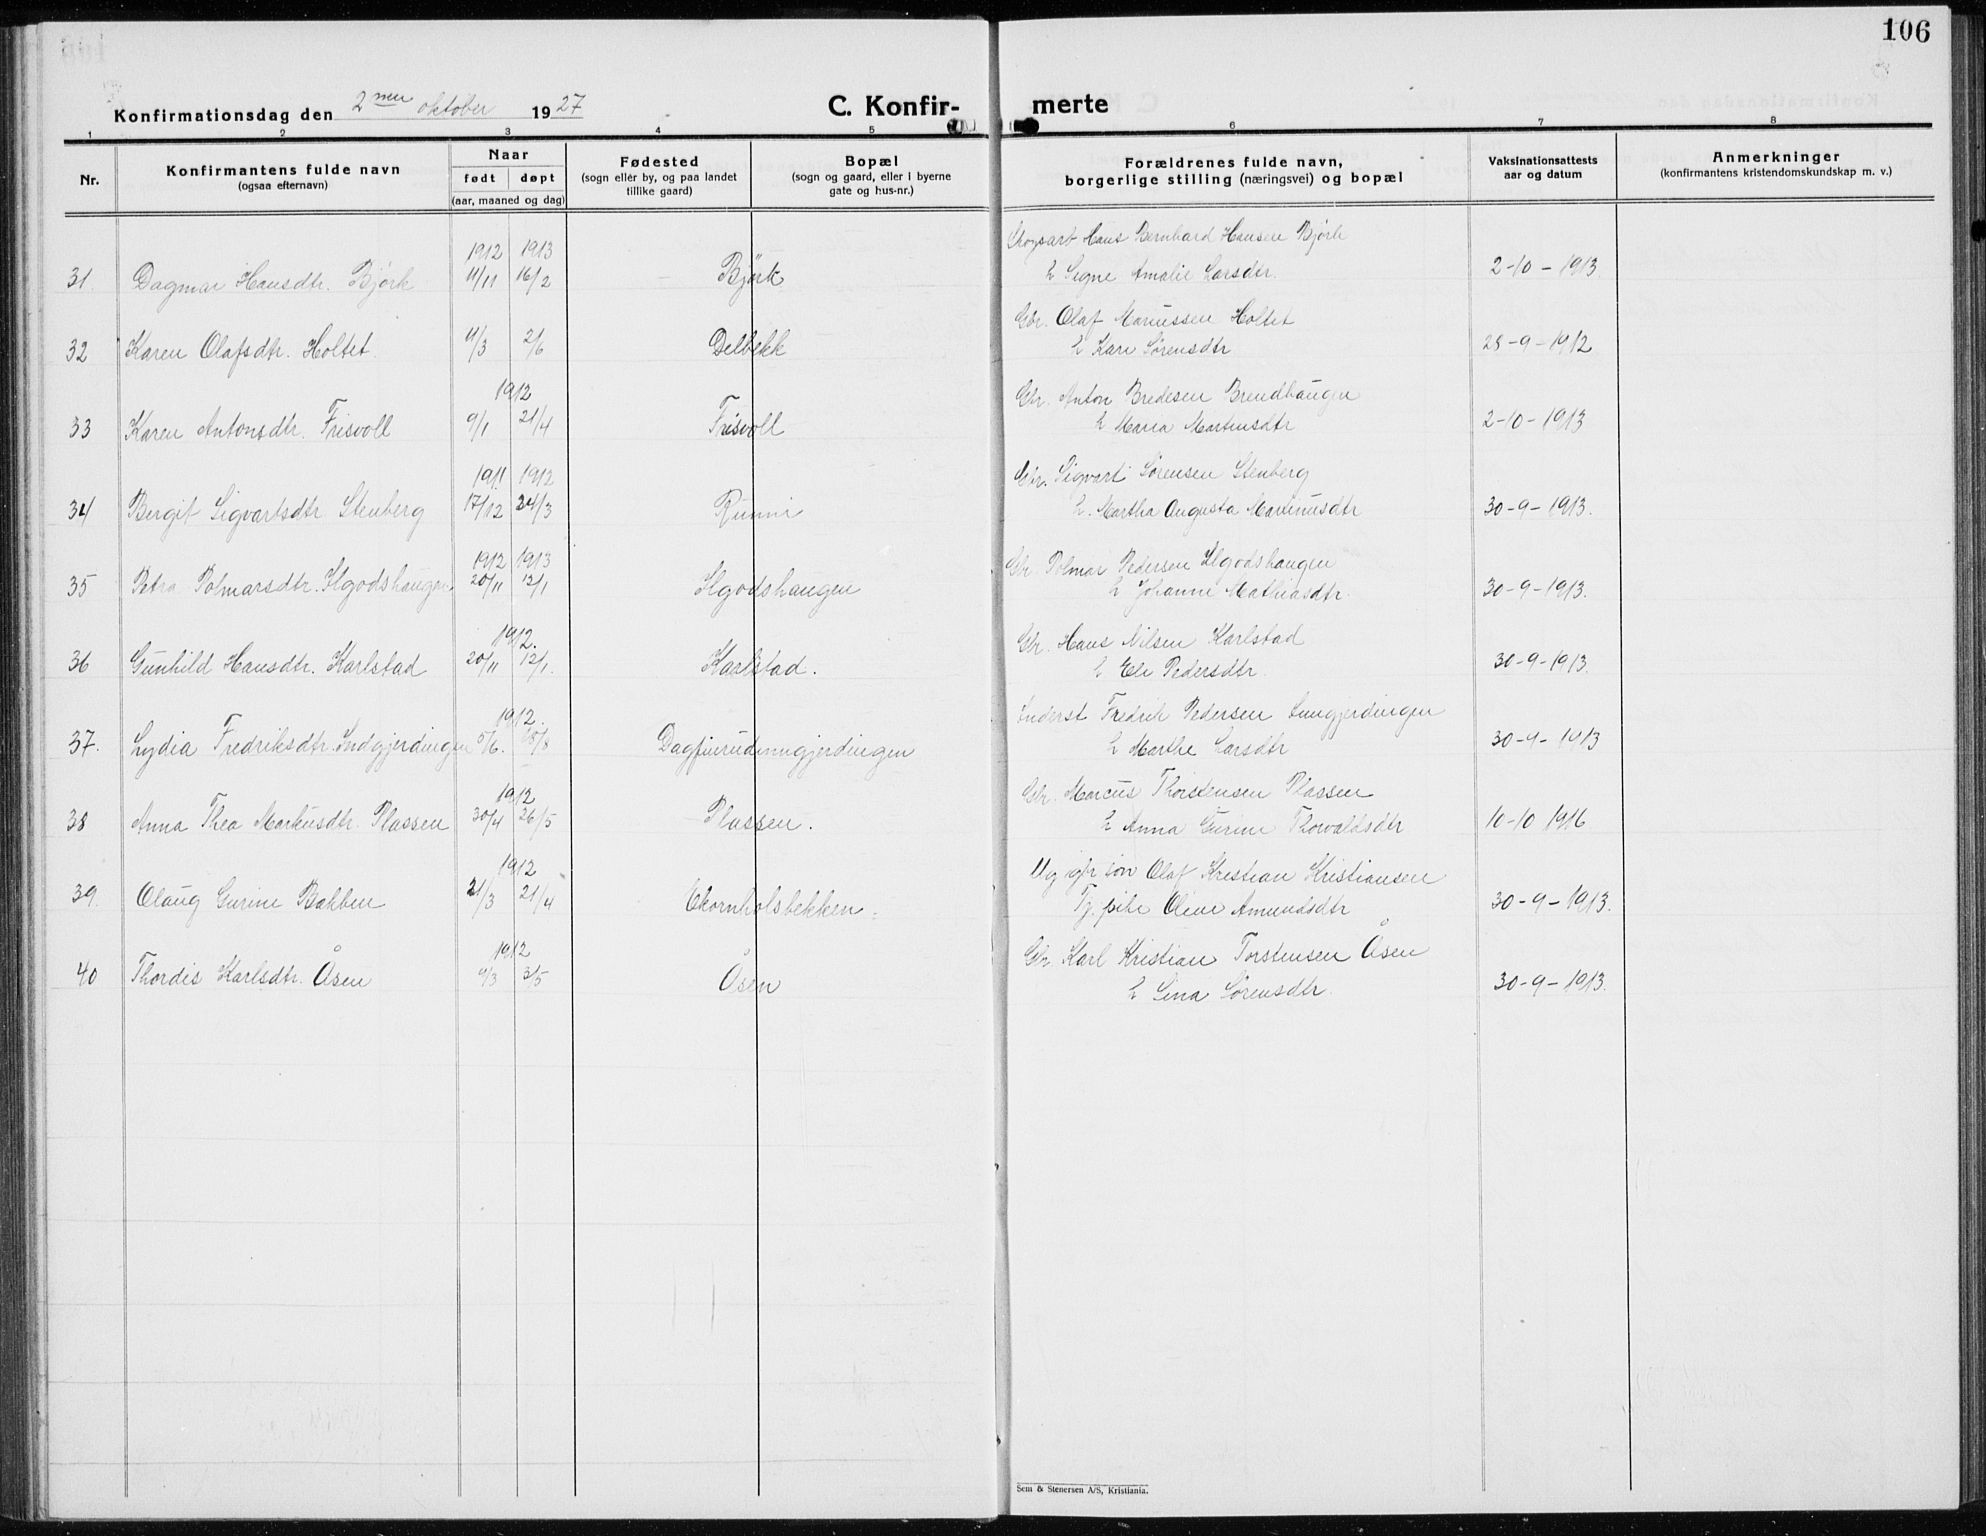 106
Konfirmationsdag den 2 nen oktober 1927
C. Konfir-
merte
1 2 3 4 5 6 7 8
Nr.
Konfirmantens fulde navn
(ogsaa efternavn)
Naar
født døpt
(aar, maaned og dag)
Fødested
(sogn eller by, og paa landet
tillike gaard)
Bopæl
(sogn og gaard, eller i byerne
gate og hus-nr.)
Forældrenes fulde navn,
borgerlige stilling (næringsvei) og bopæl
Vaksinationsattests
aar og datum
Anmerkninger
(konfirmantens kristendomskundskap m. v.)
1912 1913 Hans Bernhard Hansen Bjørk
31. Dagmar Hansdtr. Bjørk 11/11 16/2 Björk & Signe Amalie Larsdtr. 2-10-1913
Gbr. Olaf Mariussen Holtet
32 Karen Olafsdtr. Holtet. 11/3 2/6 Delbekk & Kari Sørensdtr 28-9-1912
1912 Gbr. Anton Bredesen Brendhaugen
33 Karen Antonsdtr. Frisvoll 9/1 21/4 Frisvoll & Maria Martinsdtr 2-10-1913
1911 1912 Gbr. Sigvart Sørensen Stenberg
34 Bergit Sigvartsdtr Stenberg 17/12 24/3 Runni &. Martha Augusta 30-9-1913.
1912 1913 Gbr. Polmar Pedersen Ilgodshaugen
35 Petra Polmarsdtr. Ilgodshaugen 20/11 12/1 Ilgodshaugen & Johanne Mathiasdtr. 30-9-1913.
1912. Gbr. Hans Nilsen Karlstad
36 Gunhild Hansdtr. Karlstad 20/11 12/1. Karlstad. & Eli Pedersdtr. 30-9-1913.
1912. Inderst Fredrik Pedersen Inngjerdingen
37. Lydia Fredriksdtr. Indgjerdingen /6. /8 Dagfinrudinngjerdingen & Marthe Larsdtr 30-9-1913
1912 Gbr. Marcus Thorstensen Plassen
38 Anna Thea Markusdtr. Plassen 30/4 26/5 Plassen. & Anna Gurine Thorvaldsdtr 10-10 1916
1912 Ug gbr søn Olaf Kristian Kristiansen
39. Olaug Gurine Bakken 21/3 21/4 Ekornholsbekken. Tj. pike Oline Amundsdtr 30-9-1913.
1912 Gbr. Karl Kristian Torstensen Åsen
40 Thordis Karlsdtr. Åsen 9/3 3/5 Åsen & Lina Sørensdtr. 30-9-1913.
Sem & Stenersen A/S, Kristiania.